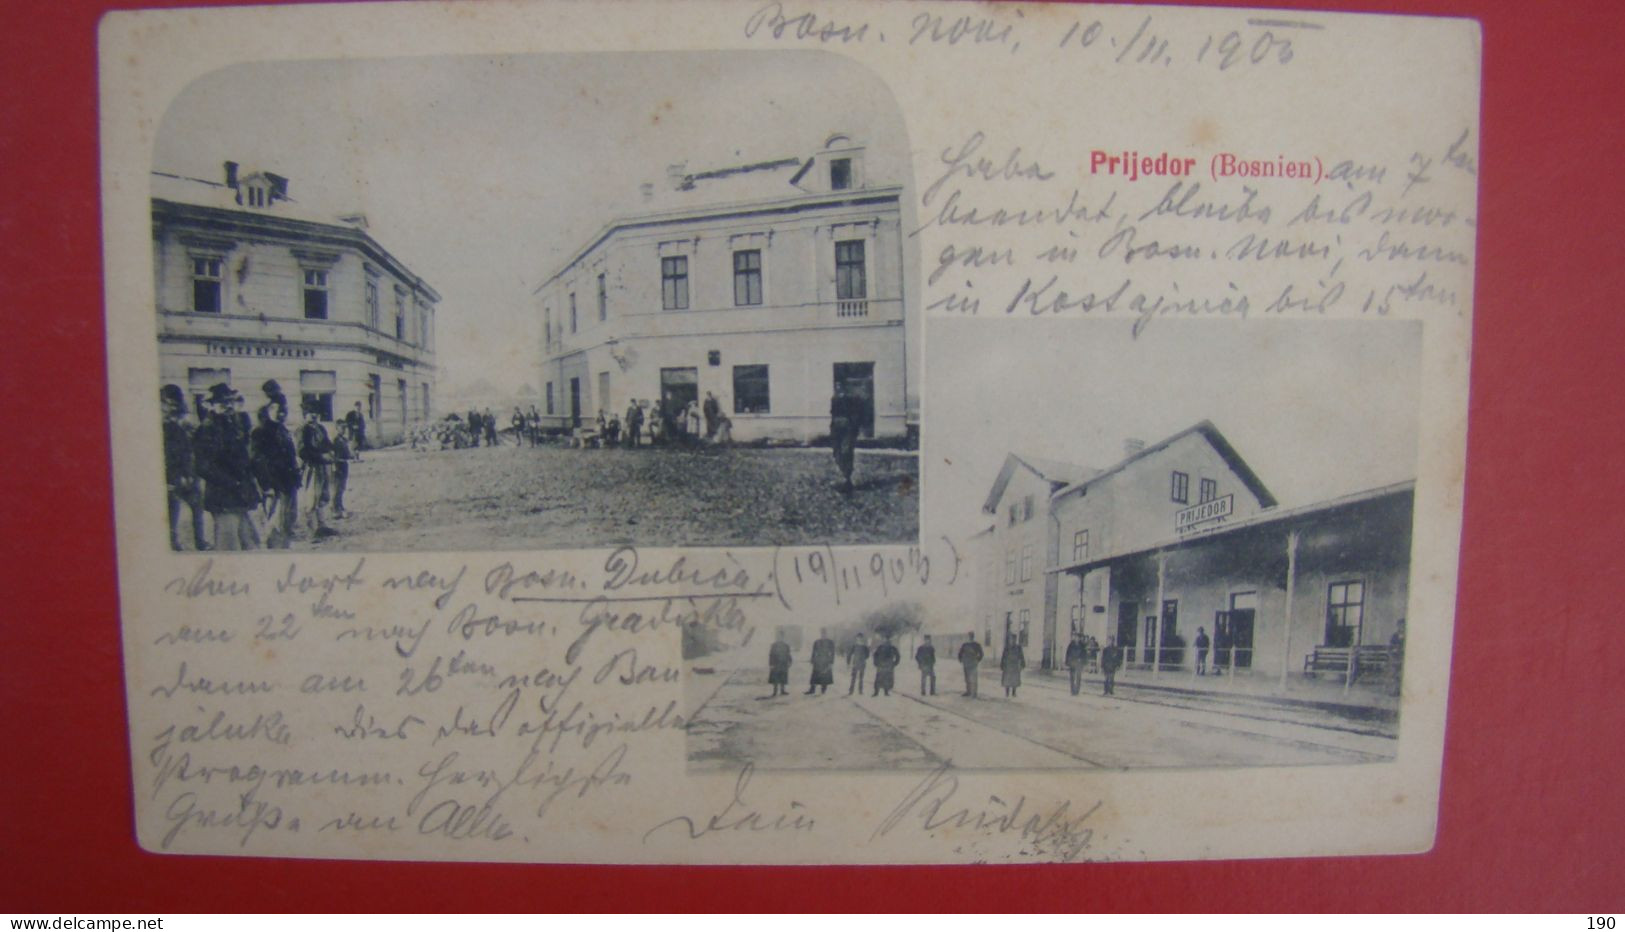 Bosn. Novi, 10./11. 1903
Habe Prijedor (Bosnien). am 7ten
beendet, bleibe bis mor-
gen in Bosn. Novi, dann
in Kostajnica bis 15ten.
PRIJEDOR
Von dort nach Bosn. Dubica, (19/11 903)
am 22ten nach Bosn. Gradiska,
dann am 26ten nach Ban-
jaluka. Dies das offizielle
Programm. Herzlichste
Grüße an Alle.
Dein Rudolf
delcampe.net
tamara66
190